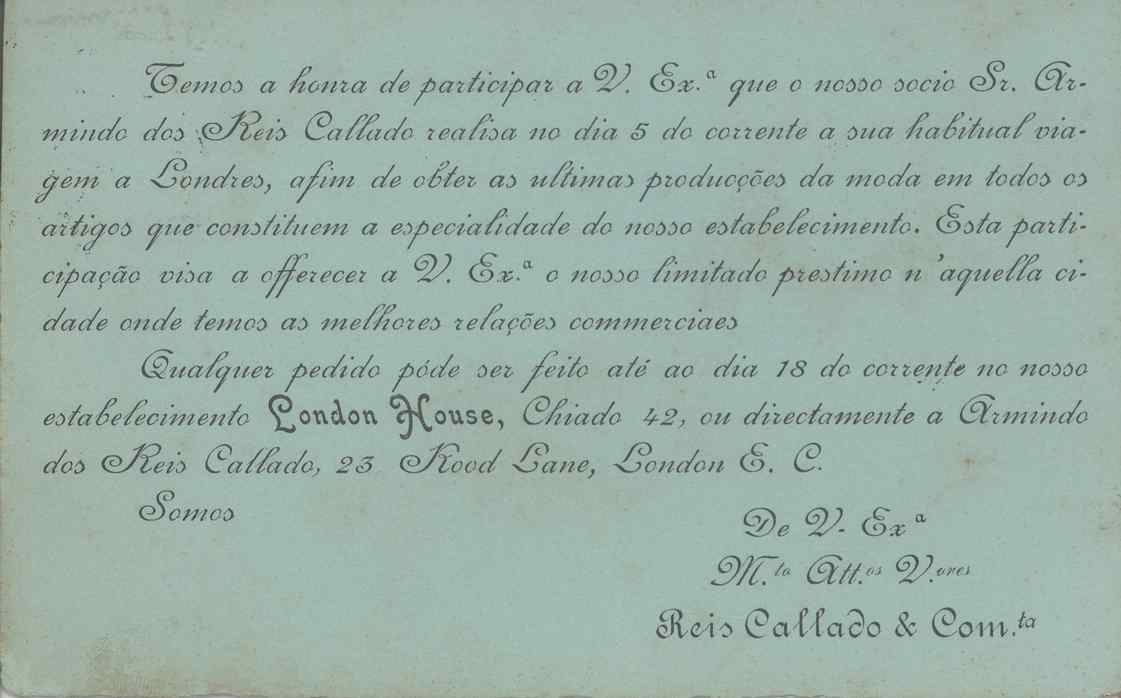 Temos a honra de participar a V. Ex.ª que o nosso socio Sr. Ar-
mindo dos Reis Callado realisa no dia 5 do corrente a sua habitual via-
gem a Londres, afim de obter as ultimas producções da moda em todos os
artigos que constituem a especialidade do nosso estabelecimento. Esta parti-
cipação visa a offerecer a V. Ex.ª o nosso limitado prestimo n'aquella ci-
dade onde temos as melhores relações commerciaes
Qualquer pedido póde ser feito até ao dia 18 do corrente no nosso
estabelecimento London House, Chiado 42, ou directamente a Armindo
dos Reis Callado, 23 Rood Lane, London E. C.
Somos
De V. Exª
M.ta Att.os V.ores
Reis Callado & Com.ta